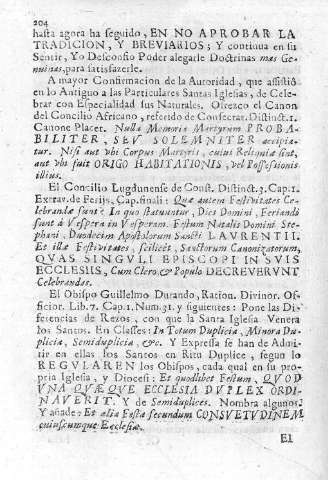 204
hasta agora ha seguido, EN NO APROBAR LA
TRADICION, Y BREVIARIOS; Y continua en su
Sentir, Yo Desconfio Poder alegarle Doctrinas mas Ge-
nuinas, para satisfazerle.
A mayor Confirmacion de la Autoridad, que assistiò
en lo Antiguo a las Particulares Santas Iglesias, de Cele-
brar con Especialidad sus Naturales. Ofrezco el Canon
del Concilio Africano, referido de Consecrat. Distinct. 1.
Canone Placet. Nulla Memoria Martyrum PROBA-
BILITER, SEV SOLEMNITER accipia-
tur. Nisi aut vbi Corpus Martyris, cuius Reliquiæ sint,
aut vbi fuit ORIGO HABITATIONIS, vel Possessionis
illius.
El Concilio Lugdunense de Const. Distinct. 3. Cap. 1.
Extrav. de Ferijs, Cap. finali: Quæ autem Festivitates Ce-
lebrandæ sunt? In quo statuuntur, Dies Domini, Feriandi
sunt á Vespera in Vesperam. Festum Natalis Domini Ste-
phani, Duodecim Apostolorum Sancti LAVRENTII.
Et illæ Festivitates, scilicet, Sanctorum Canonizatorum,
QVAS SINGVLI EPISCOPI IN SVIS
ECCLESIIS, Cum Clero, & Populo DECREVERVNT
Celebrandas.
El Obispo Guillelmo Durando, Ration. Divinor. Of-
ficior. Lib. 7. Cap. 1. Num. 31. y siguientes: Pone las Di-
ferencias de Rezos, con que la Santa Iglesia Venera
los Santos. En Classes: In Totum Duplicia, Minora Du-
plicia, Semiduplicia, &c. Y Expressa se han de Admi-
tir en ellas los Santos en Ritu Duplice, segun lo
REGVLAREN los Obispos, cada qual en su pro-
pria Iglesia, y Diocesi: Et quodlibet Festum, QVOD
VNA QVÆQVE ECCLESIA DVPLEX ORDI-
NAVERIT. Y de Semiduplices. Nombra algunos:
Y añade: Et alia Festa secundum CONSVETVDINEM
cuiuscumque Ecclesiæ.
El